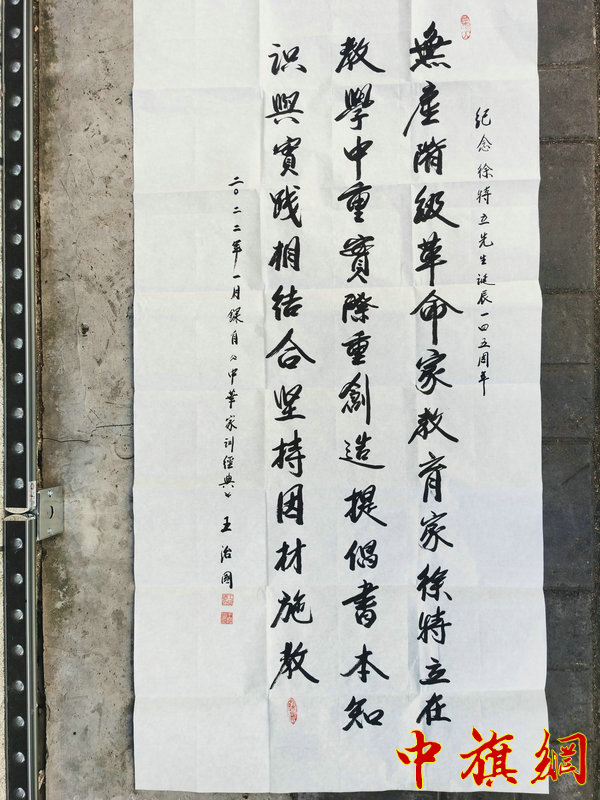 紀念徐特立先生诞辰一四五周年
無產階級革命家教育家徐特立在
教學中重實際重創造提倡書本知
识與實践相结合坚持因材施教
二〇二二年一月録自《中華家训經典》王治國
中旗網